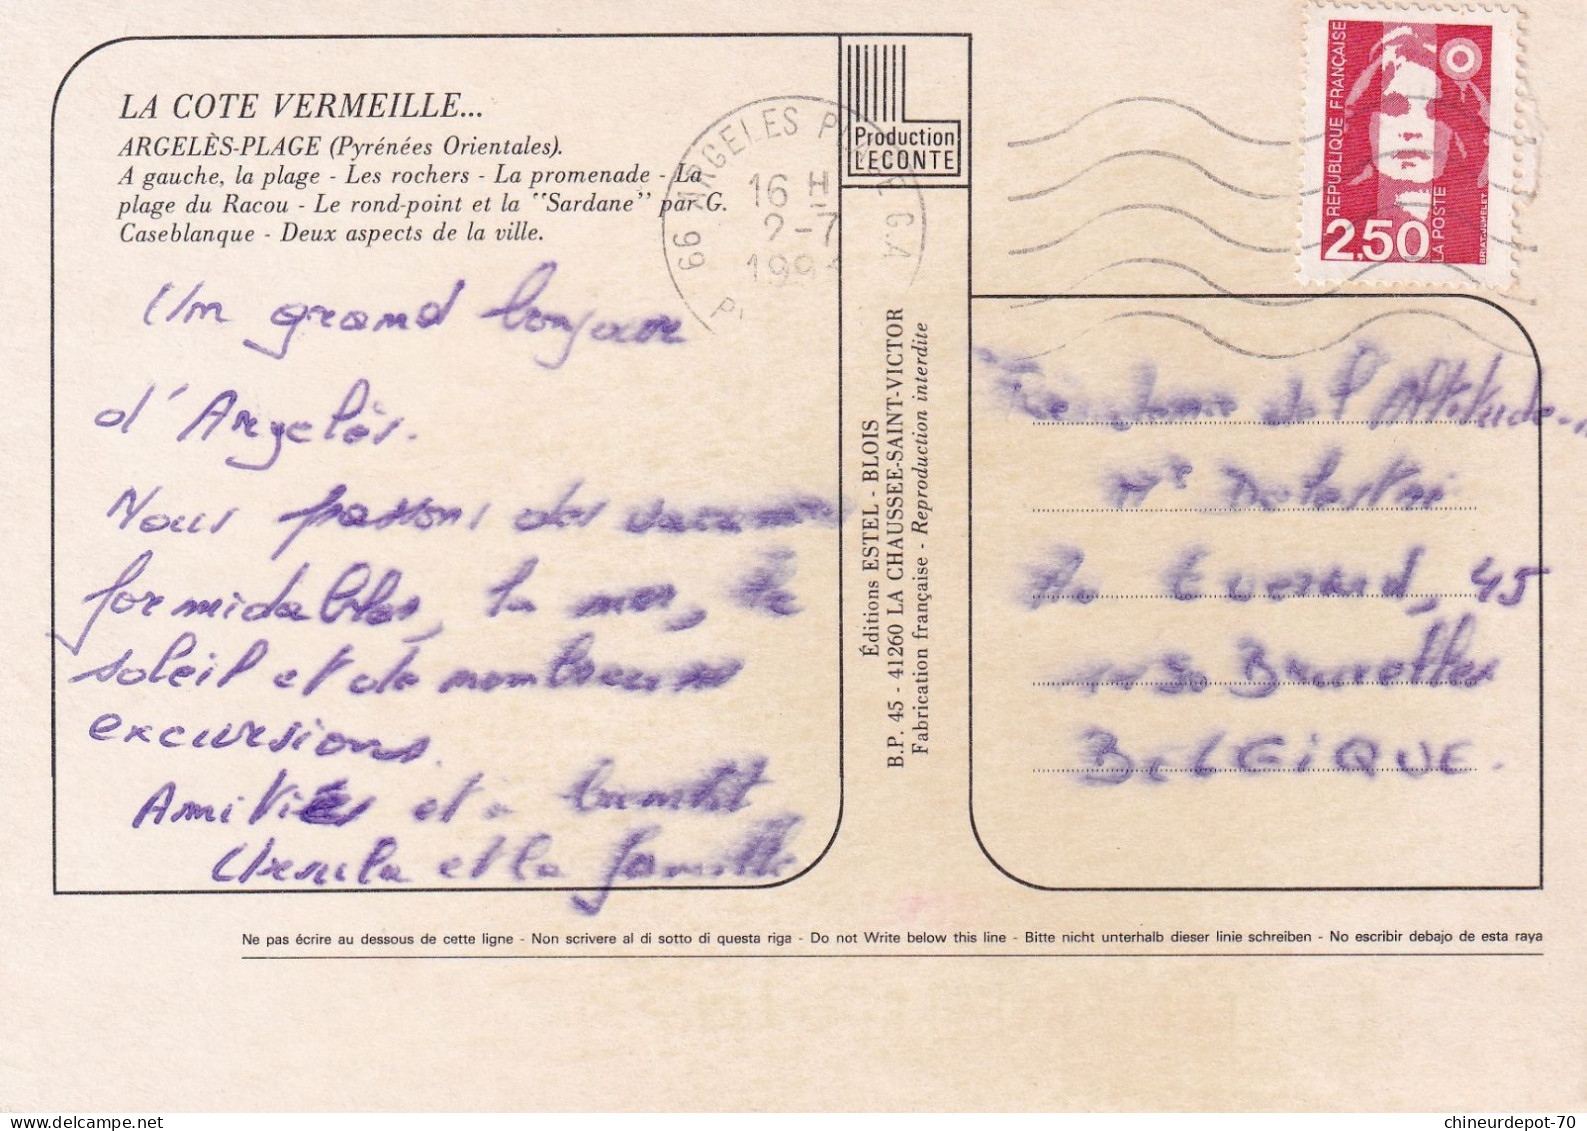 LA COTE VERMEILLE...
ARGELÈS-PLAGE (Pyrénées Orientales).
A gauche, la plage - Les rochers - La promenade - La
plage du Racou - Le rond-point et la "Sardane" par G.
Caseblanque - Deux aspects de la ville.
Un grand bonjour
d'Argelès.
Nous passons des vacances
formidables, la mer, le
soleil et de nombreuses
excursions.
Amitiés et à bientôt
Ursula et la famille
Production
LECONTE
66 ARGELES PLAGE G.A
16 H
2-7
199
Éditions ESTEL - BLOIS
B.P. 45 - 41260 LA CHAUSSEE-SAINT-VICTOR
Fabrication française - Reproduction interdite
REPUBLIQUE FRANÇAISE
2,50
LA POSTE
BRIAT-JUMELET
de l'Altitude
Mr
45
Bruxelles
BELGIQUE.
Ne pas écrire au dessous de cette ligne - Non scrivere al di sotto di questa riga - Do not Write below this line - Bitte nicht unterhalb dieser linie schreiben - No escribir debajo de esta raya
chineurdepot-70